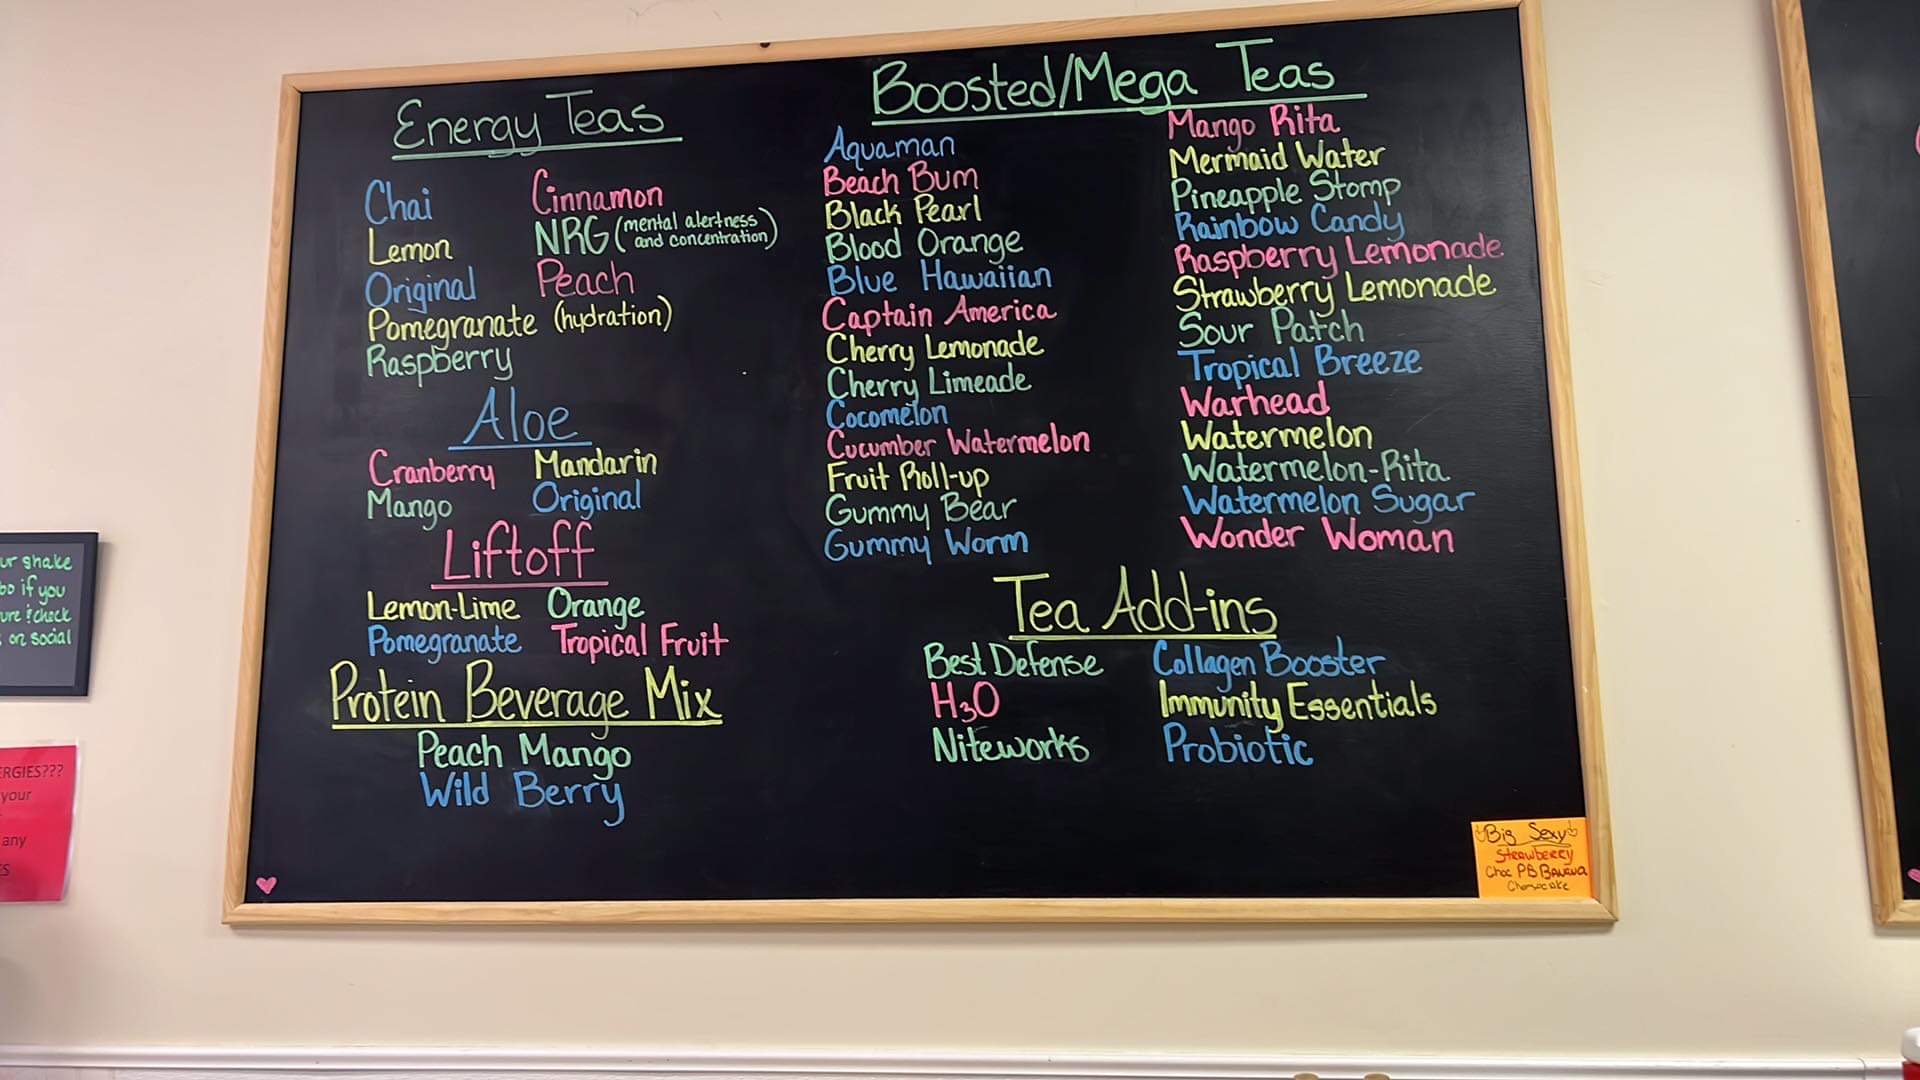 Energy Teas
Chai
Cinnamon
Lemon
NRG (mental alertness
and concentration)
Original
Peach
Pomegranate (hydration)
Raspberry
Aloe
Cranberry
Mandarin
Mango
Original
Liftoff
Lemon-Lime
Orange
Pomegranate
Tropical Fruit
Protein Beverage Mix
Peach Mango
Wild Berry
Boosted/Mega Teas
Aquaman
Beach Bum
Black Pearl
Blood Orange
Blue Hawaiian
Captain America
Cherry Lemonade
Cherry Limeade
Cocomelon
Cucumber Watermelon
Fruit Roll-up
Gummy Bear
Gummy Worm
Mango Rita
Mermaid Water
Pineapple Stomp
Rainbow Candy
Raspberry Lemonade
Strawberry Lemonade
Sour Patch
Tropical Breeze
Warhead
Watermelon
Watermelon-Rita
Watermelon Sugar
Wonder Woman
Tea Add-ins
Best Defense
Collagen Booster
H3O
Immunity Essentials
Niteworks
Probiotic
Big Sexy
Strawberry
Choc PB Banana
Cheesecake
ur shake
bo if you
ure & check
on social
ERGIES???
your
any